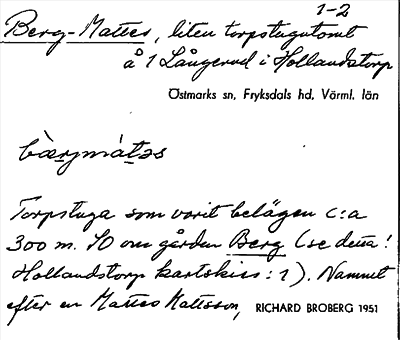 1-2
Berg-Mattes, liten torpstugutomt
å 1 Långerud i Hollandstorp
Östmarks sn, Fryksdals hd, Värml. län
bæ̀rgmátəs
Torpstuga som varit belägen c:a
300 m. SO om gården Berg (se detta!
Hollandstorp kartskiss: 1). Namnet
efter en Mattes Mattsson,
RICHARD BROBERG 1951